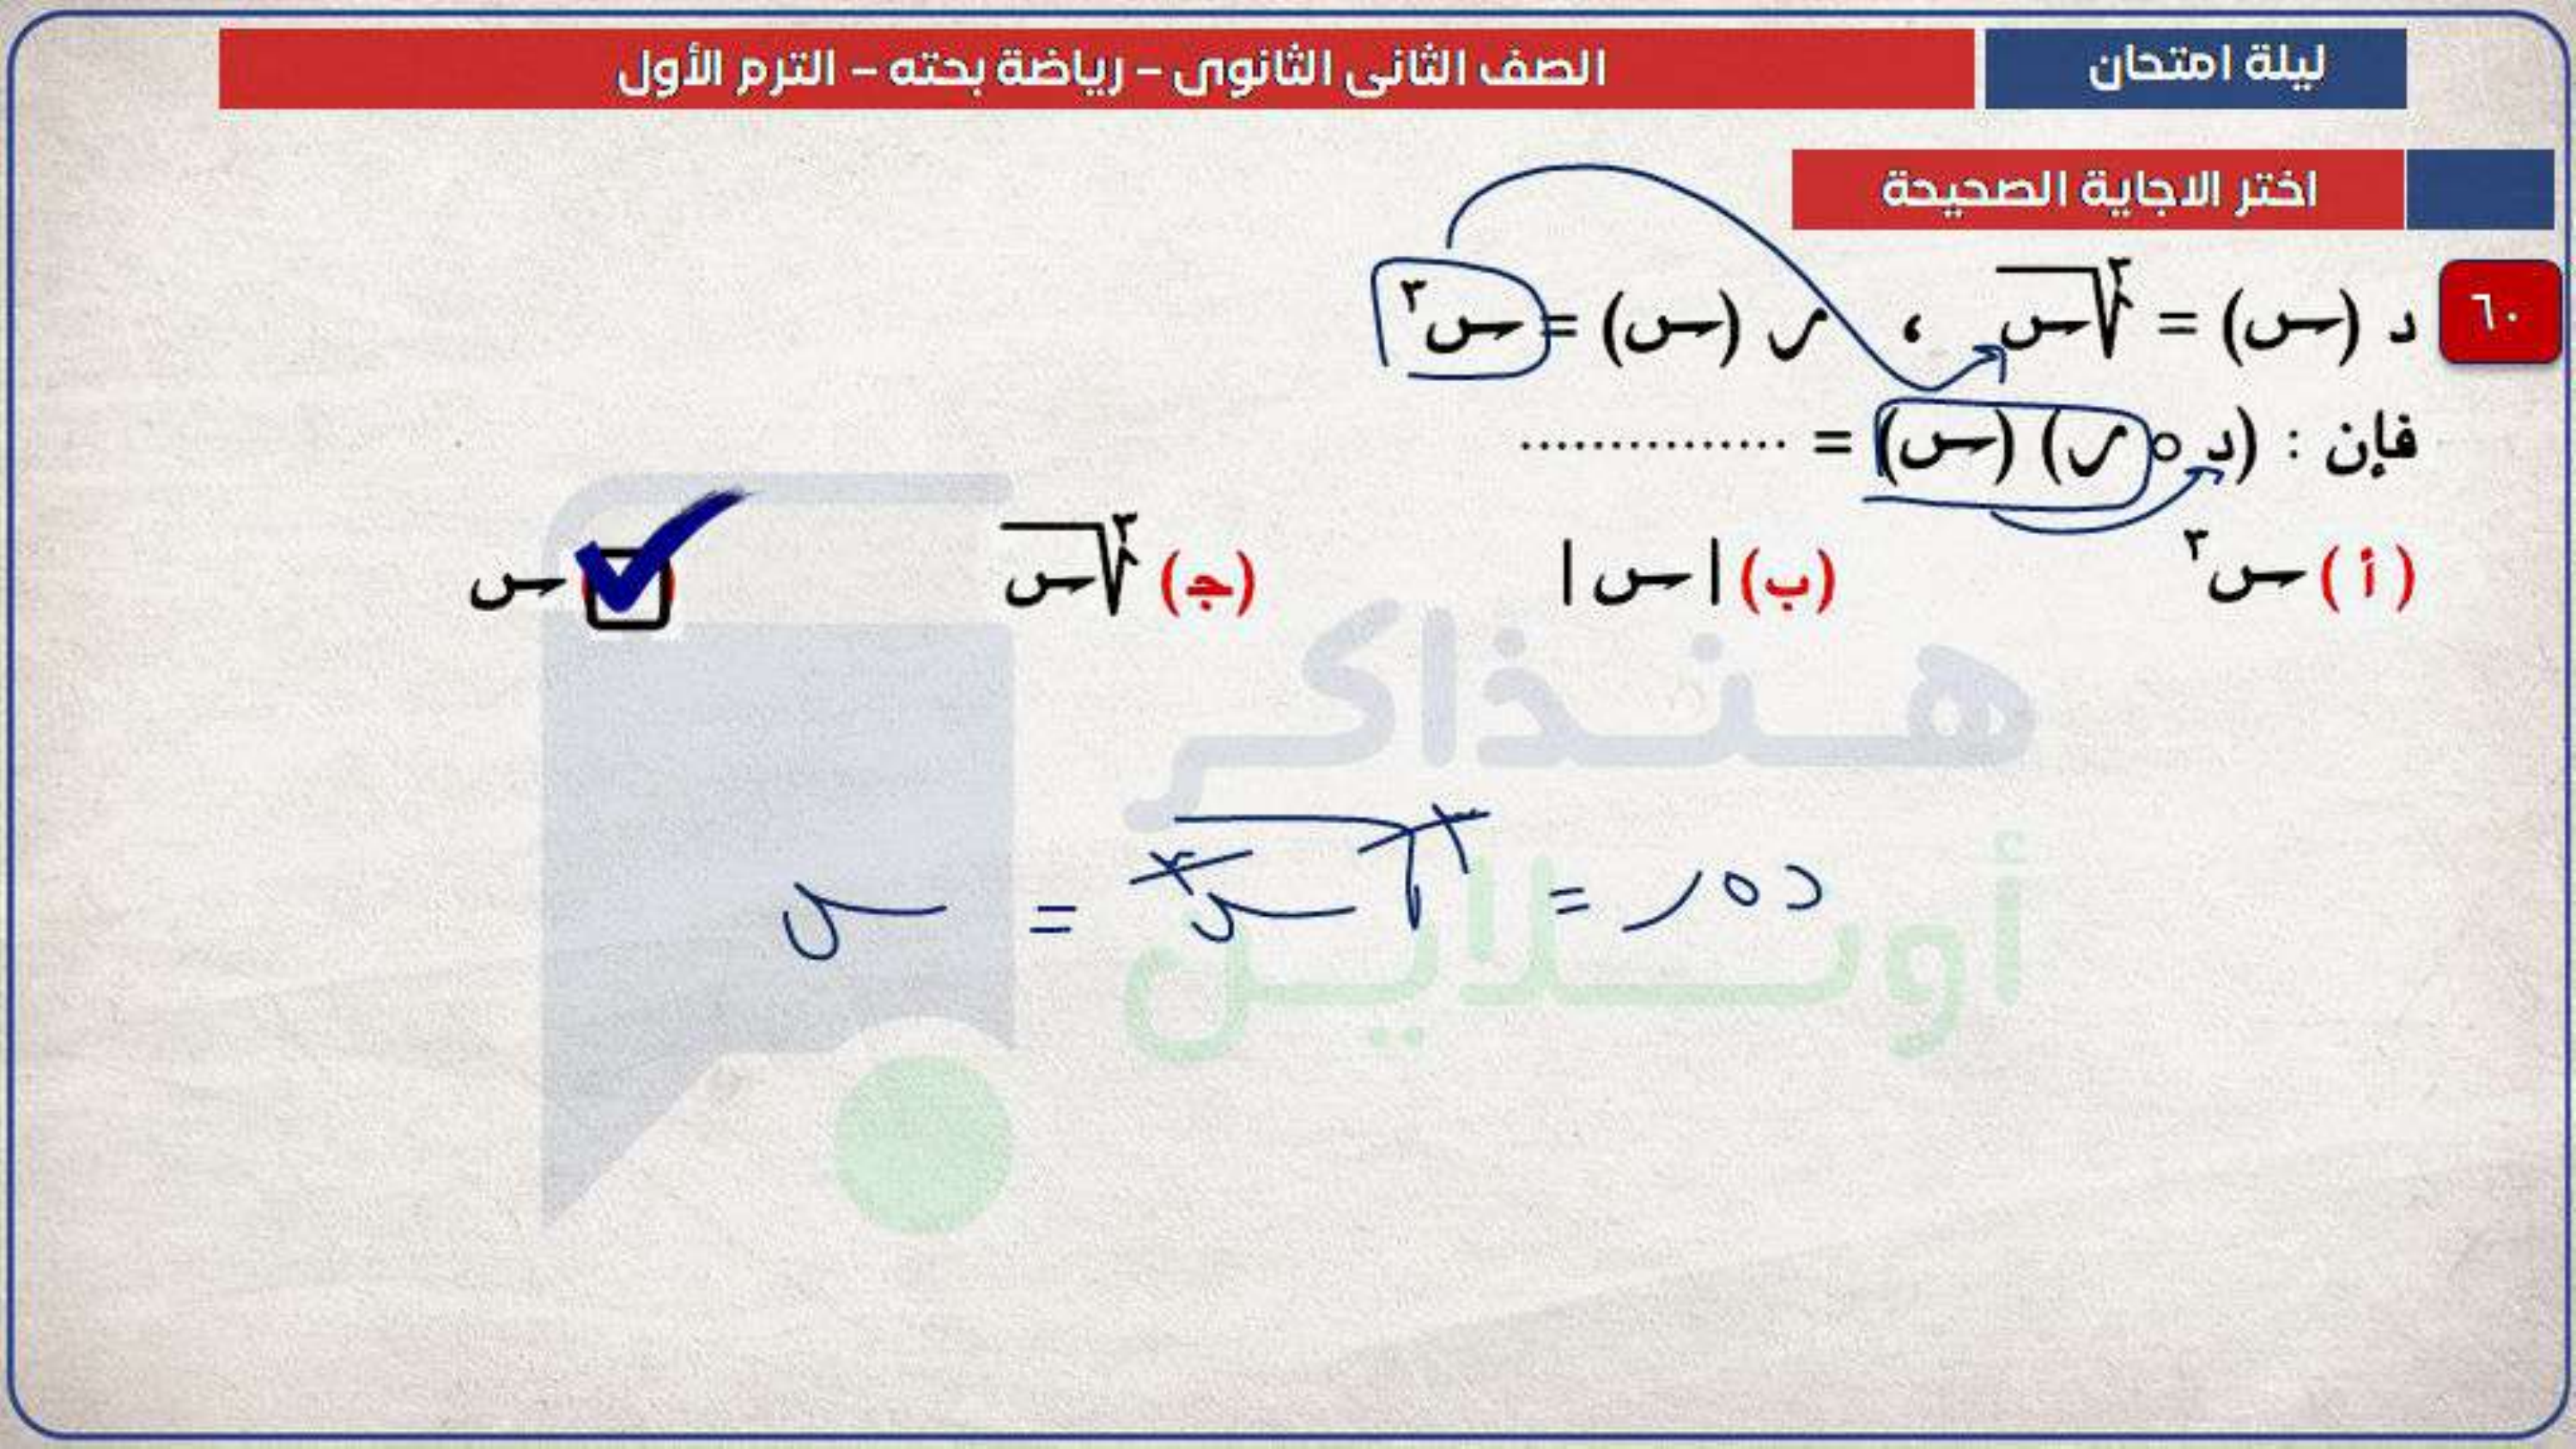 ليلة امتحان
الصف الثانى الثانوى – رياضة بحته – الترم الأول
اختر الاجاية الصحيحة
٦٠ د (س) = ∛س ، ر (س) = س³
فإن : (د ∘ ر) (س) = ...............
(أ) س³ (ب) |س| (جـ) ∛س س
هنذاكر
أونلاين
د ∘ ر = ∛س³ = س